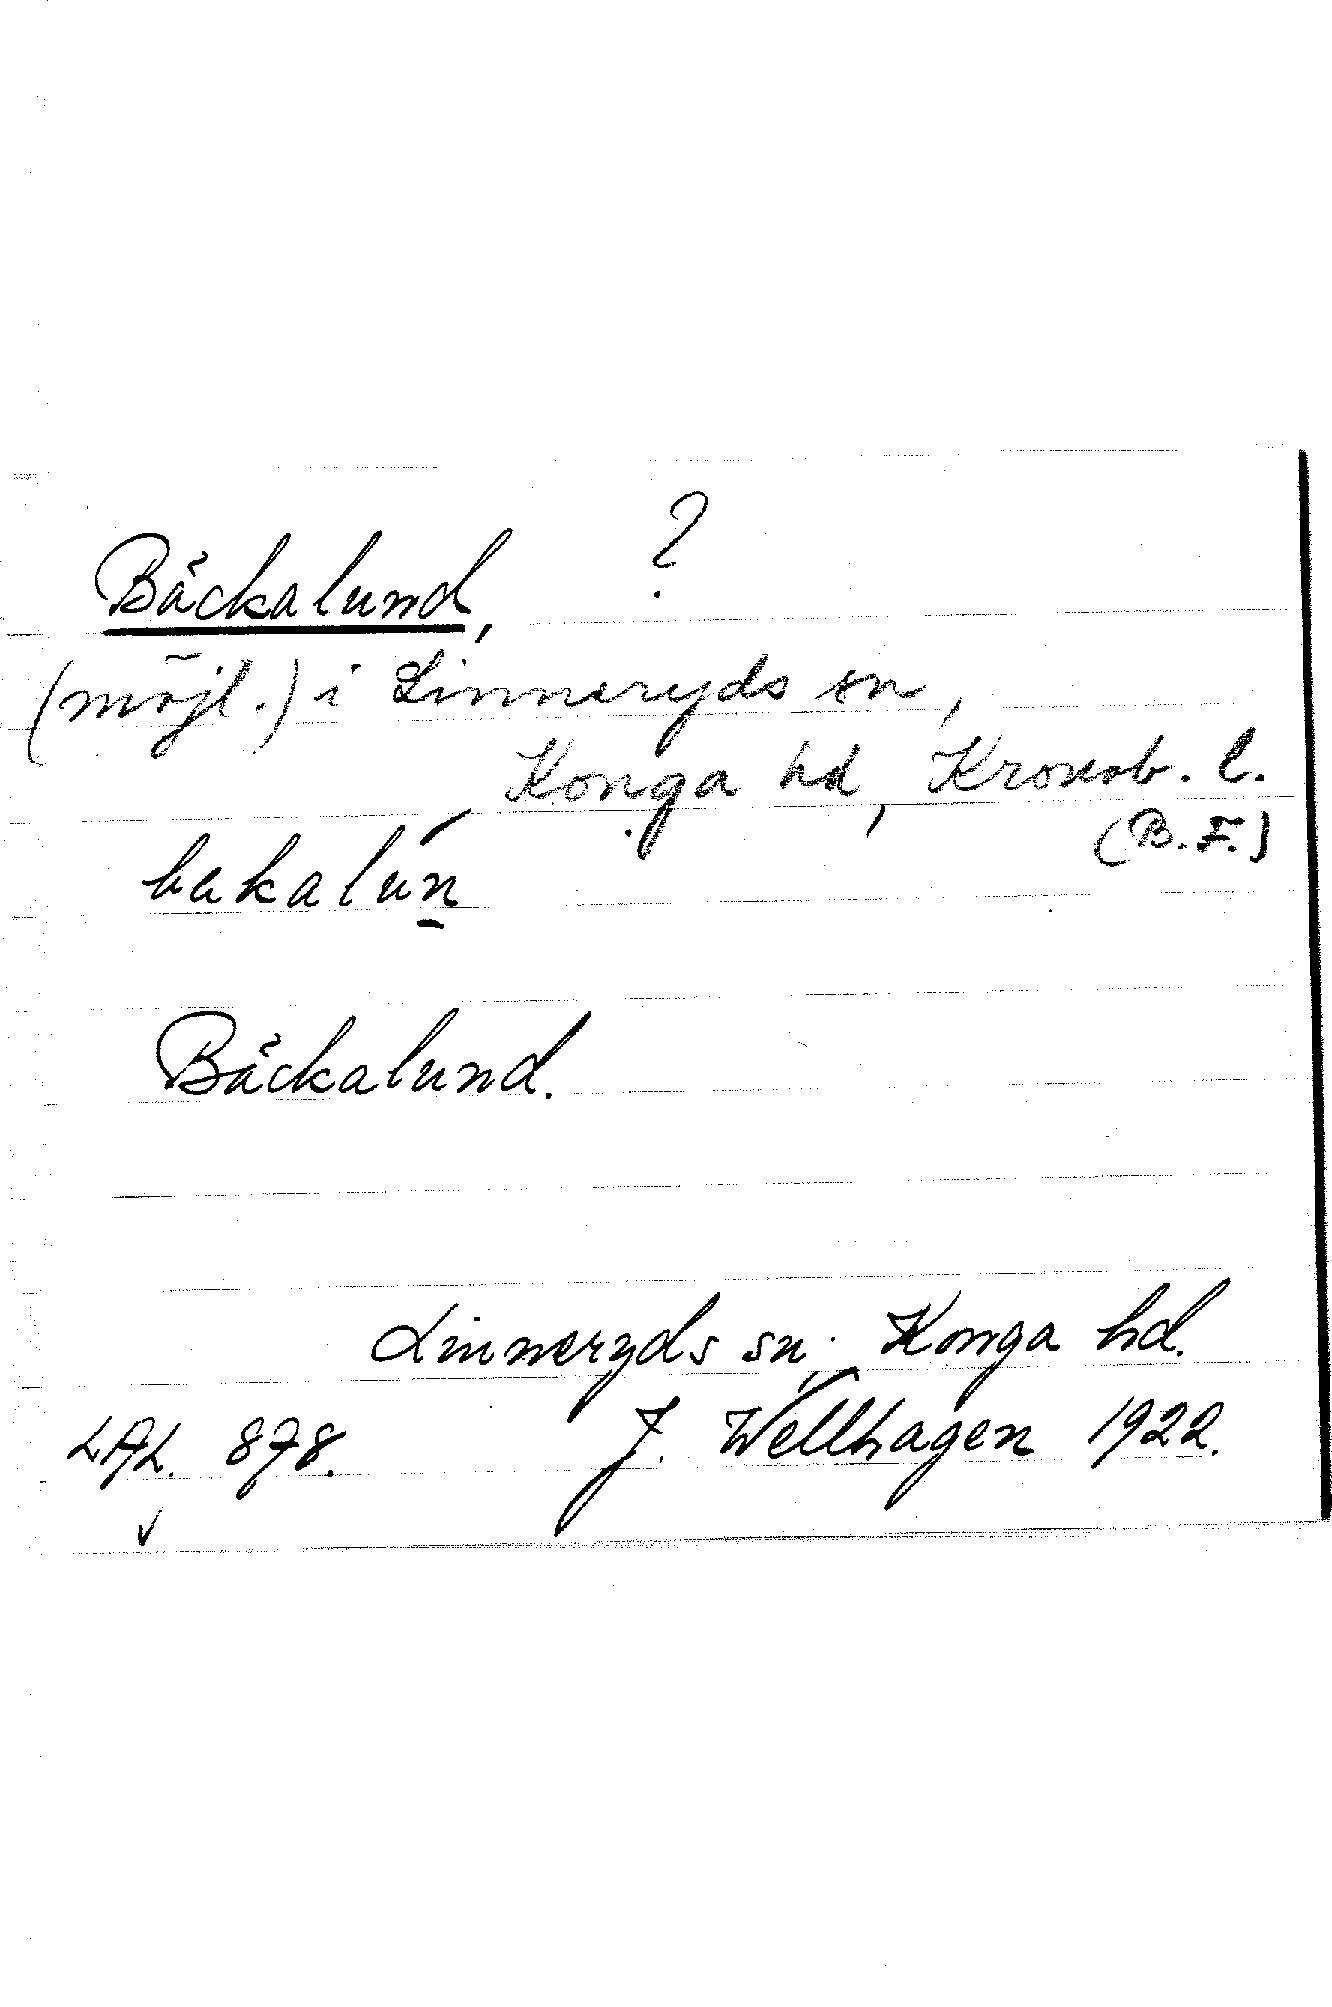 Bäckalund, ?
(möjl.) i Linneryds sn,
Konga hd, Kronob. l.
(B.F.)
bekalún̲
Bäckalund.
Linneryds sn. Konga hd.
LAL. 878. J. Wellhagen 1922.